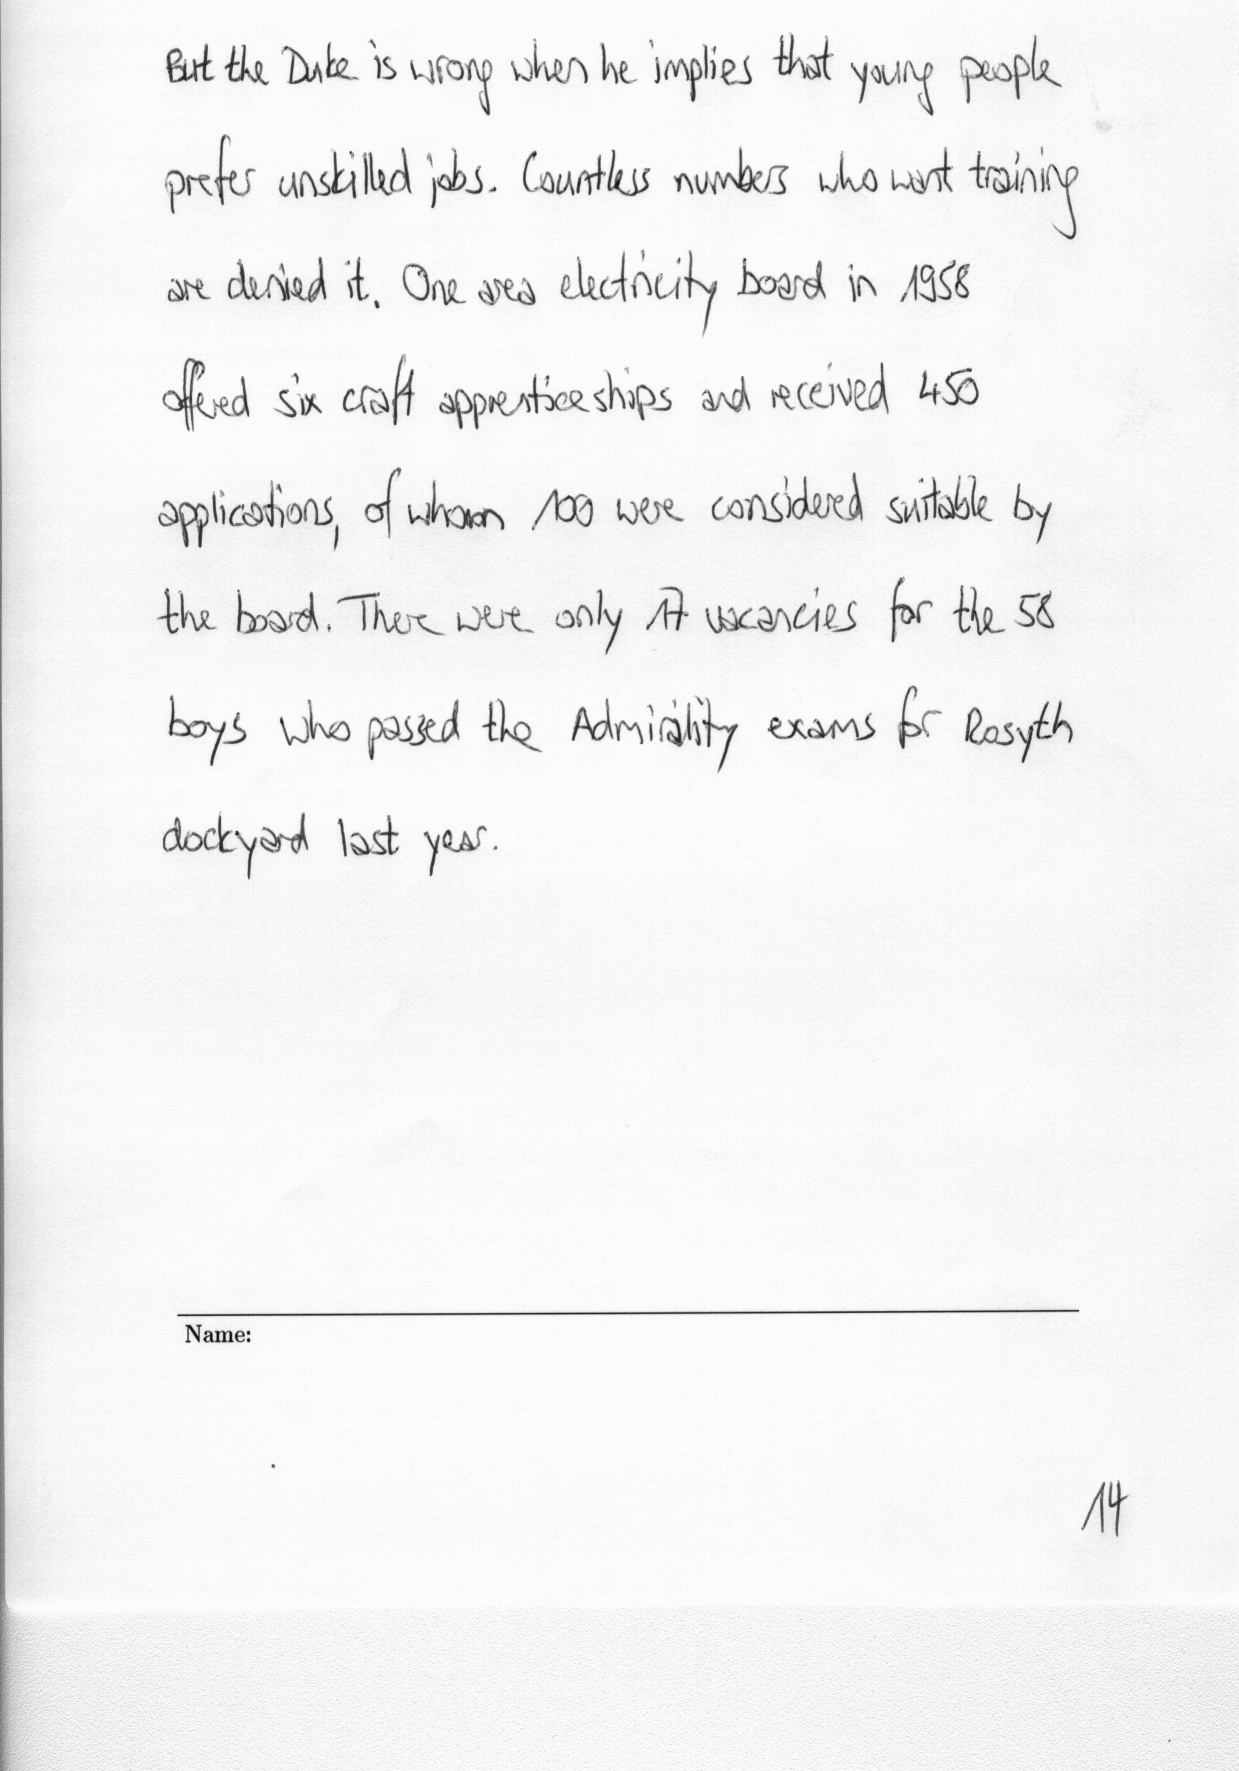 But the Duke is wrong when he implies that young people
prefer unskilled jobs. Countless numbers who want training
are denied it. One area electricity board in 1958
offered six craft apprenticeships and received 450
applications, of whom 100 were considered suitable by
the board. There were only 17 vacancies for the 58
boys who passed the Admirality exams for Rosyth
dockyard last year.
Name:
14